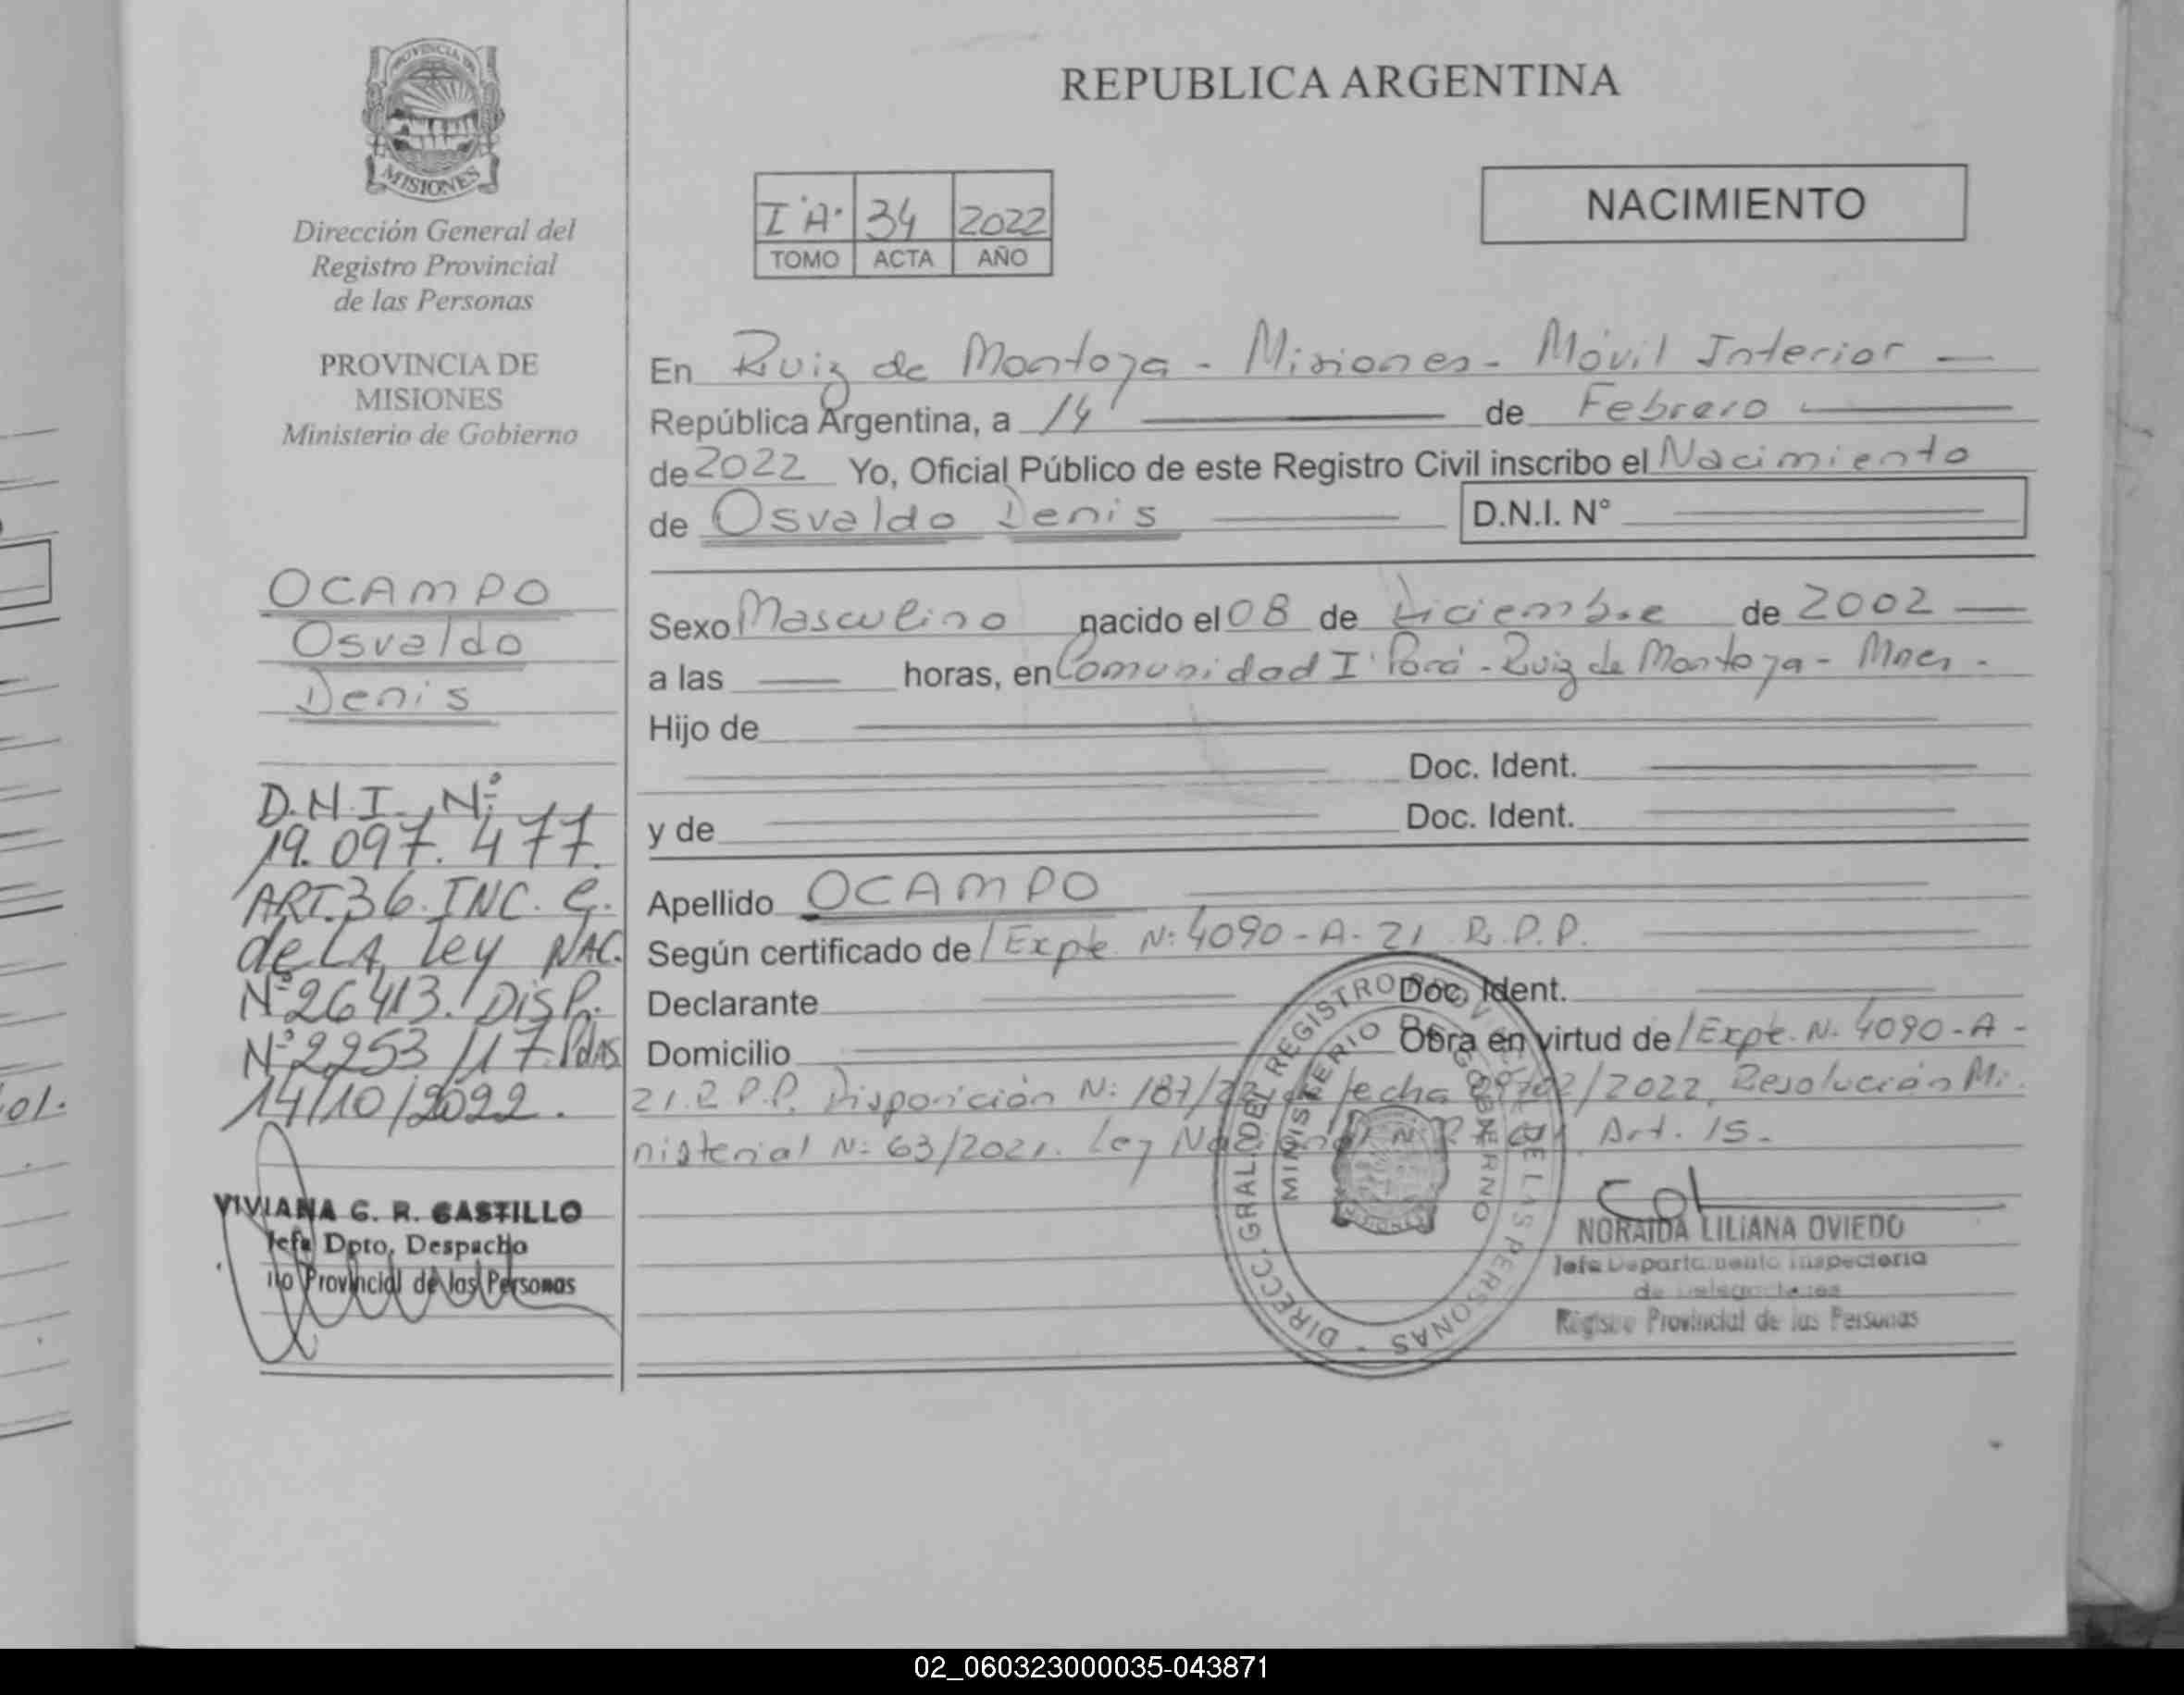 PROVINCIA DE
MISIONES
Dirección General del
Registro Provincial
de las Personas
PROVINCIA DE
MISIONES
Ministerio de Gobierno
OCAMPO
Osvaldo
Denis
D.N.I. Nº
19.097.477.
ART.36.INC. e.
de LA Ley NAC.
Nº26413. DISP.
Nº2953/17. Pdas
14/10/2022.
VIVIANA G. R. CASTILLO
Jefa Dpto. Despacho
Provincial de las Personas
REPUBLICA ARGENTINA
I "A" 34 2022
TOMO ACTA AÑO
NACIMIENTO
En Ruiz de Montoya - Misiones - Móvil Interior
República Argentina, a 14 de Febrero
de 2022 Yo, Oficial Público de este Registro Civil inscribo el Nacimiento
de Osvaldo Denis D.N.I. N°
Sexo Masculino nacido el 08 de Diciembre de 2002
a las horas, en Comunidad I' Porá - Ruiz de Montoya - Mnes -
Hijo de
Doc. Ident.
y de Doc. Ident.
Apellido OCAMPO
Según certificado de / Expte. Nº 4090-A-21 R.P.P.
Declarante Doc. Ident.
Domicilio Obra en virtud de / Expte. Nº 4090-A-
21.R.P.P. Disposición Nº 187/22 de fecha /02/2022, Resolución Mi
nisterial Nº 63/2021. Ley Nacional Art. 15.
DIRECC. GRAL. DEL REGISTRO PROV. DE LAS PERSONAS -
MINISTERIO DE GOBIERNO
MISIONES
NORAIDA LILIANA OVIEDO
Jefa Departamento Inspectoria
de Delegaciones
Registro Provincial de las Personas
ol.
02_060323000035-043871